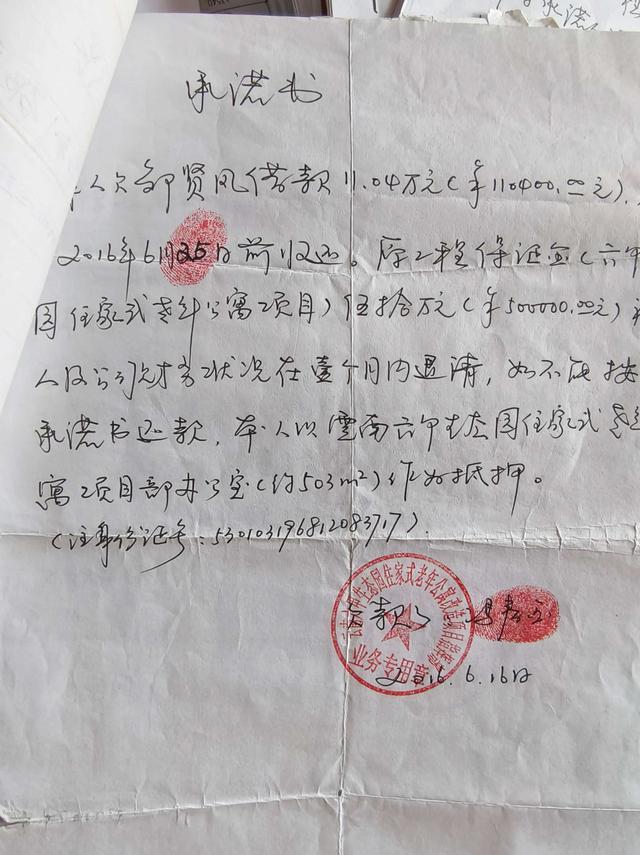 承诺书
本人欠郭贤凤借款11.04万元(¥110400.00元),
2016年6月25日前归还。原工程保证金(六甲
园住家式老年公寓项目)伍拾万元(¥500000.00元)
人及公司财务状况在壹个月内退清,如不能按
承诺书还款,本人以云南六甲生态园住家式老
寓项目部办公室(约503m²)作为抵押。
(注身份证号:530103196812083717).
款人:冯
生态园住家式老年公寓改造项目
业务专用章
2016.6.16日